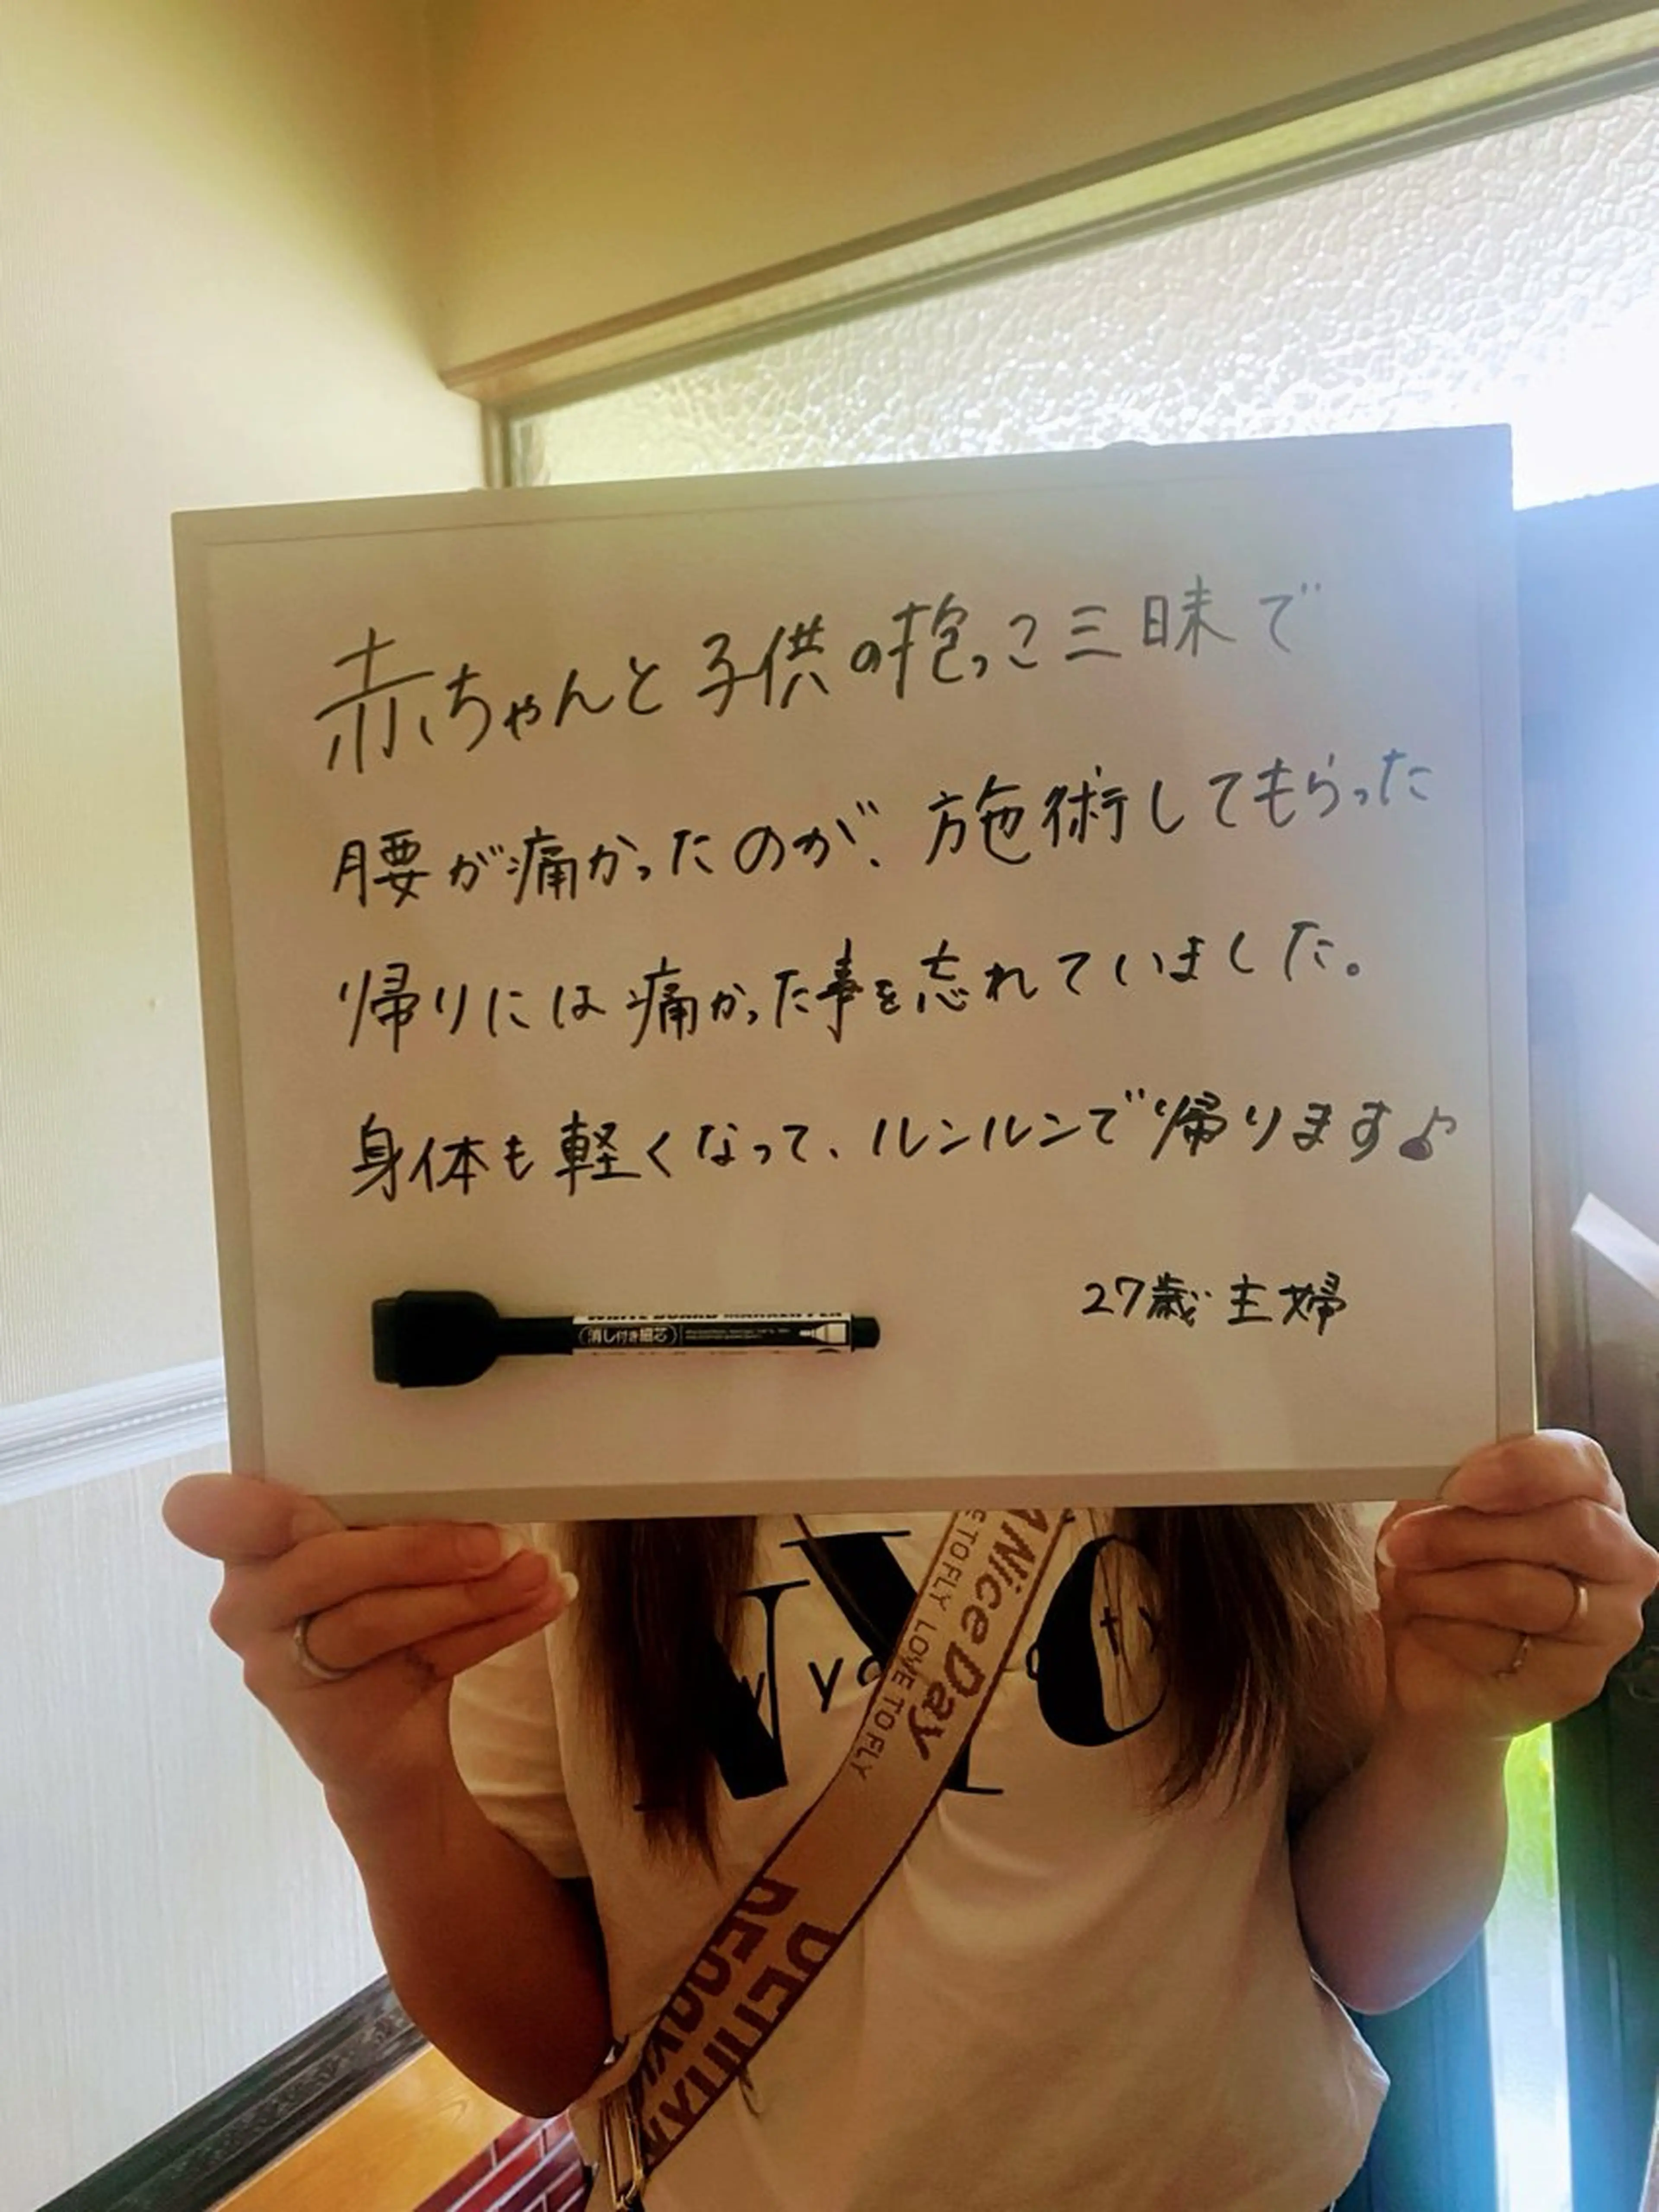 赤ちゃんと子供の抱っこ三昧で
腰が痛かったのが、施術してもらった
帰りには痛かった事を忘れていました。
身体も軽くなって、ルンルンで帰ります♪
27歳 主婦
(消し付き細芯)
Nice Day
E TO FLY LOVE TO FLY